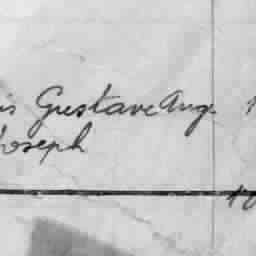 is Gustave Aug.
Joseph